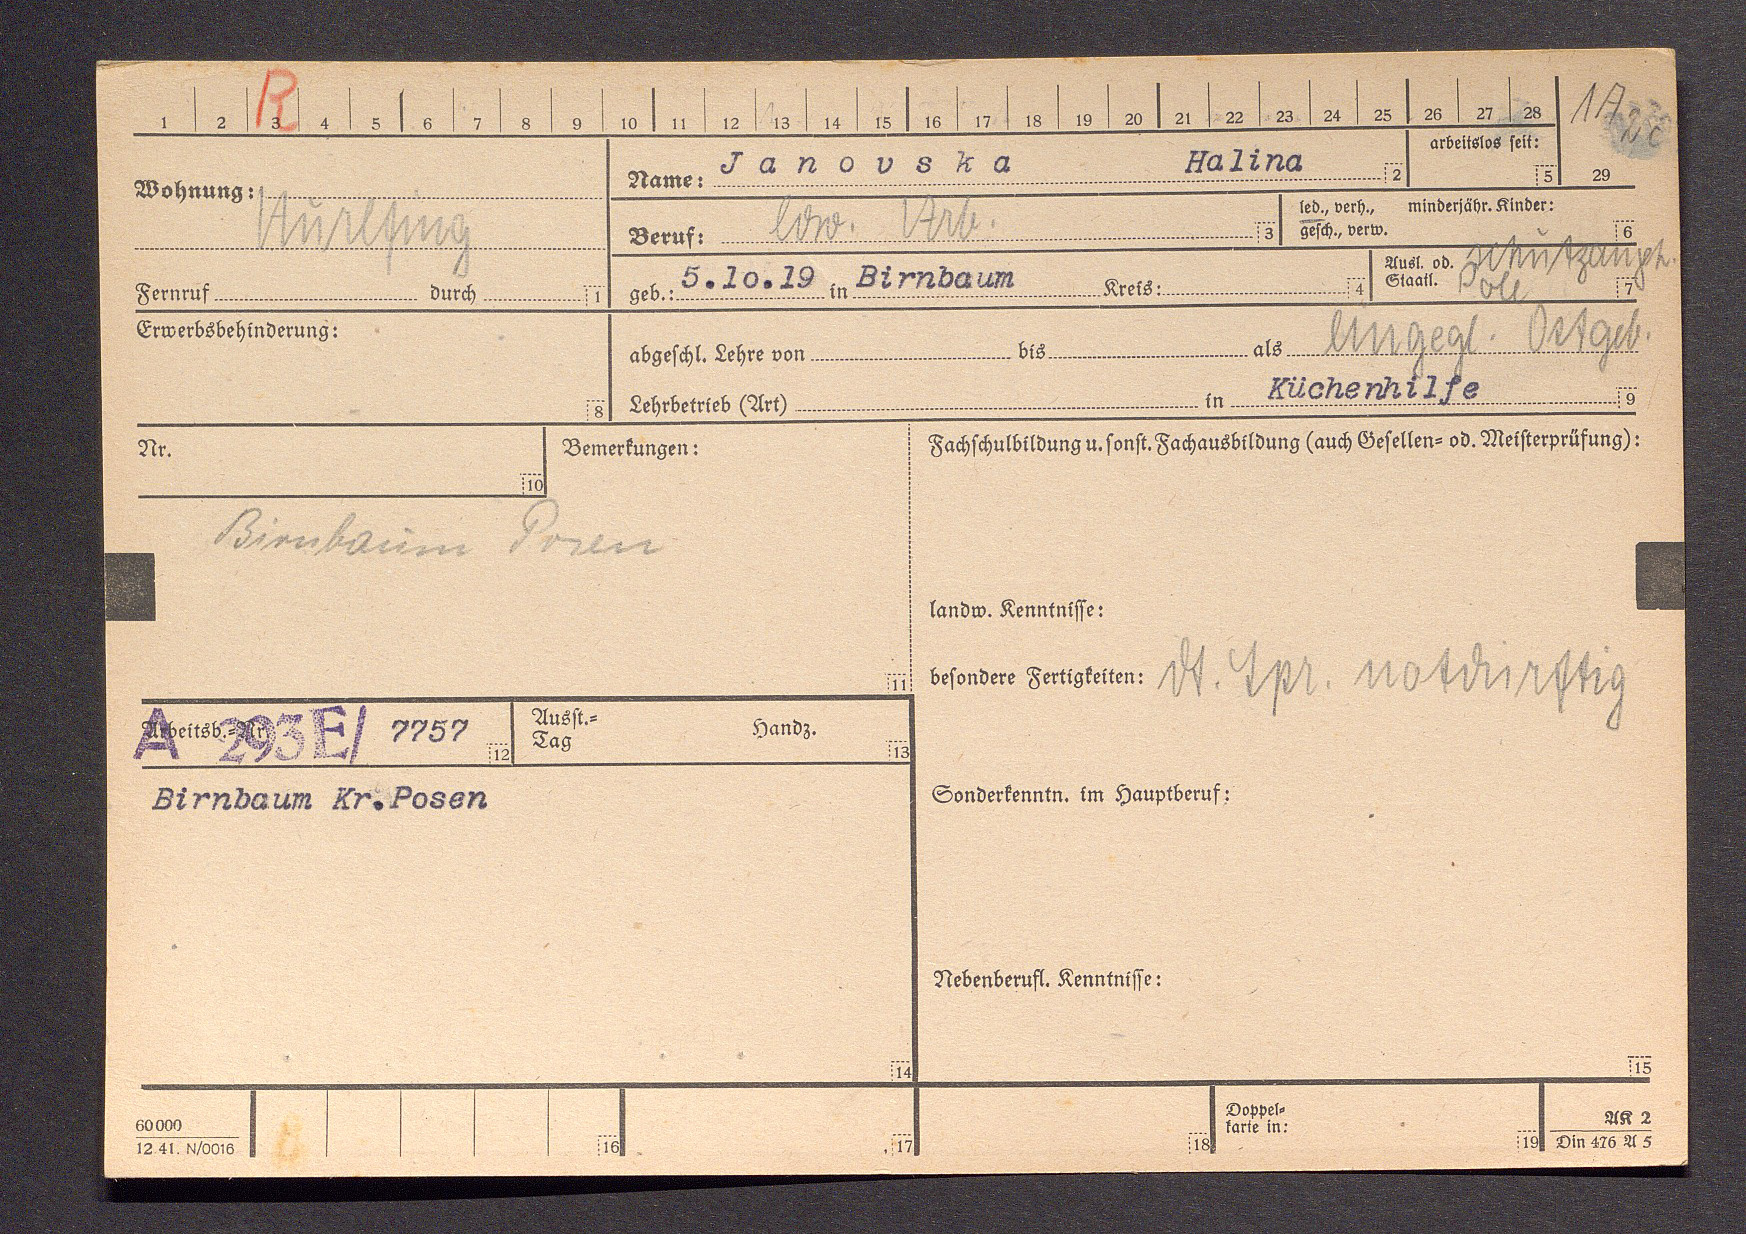 R
1 2 3 4 5 6 7 8 9 10 11 12 13 14 15 16 17 18 19 20 21 22 23 24 25 26 27 28
29
Wohnung:
Fernruf durch 1
Name: Janovska Halina 2
arbeitslos seit: 5
Beruf: ldw. Arb. 3
led., verh., minderjähr. Kinder:
gesch., verw. 6
geb.: 5.10.19 in Birnbaum Kreis: 4
Ausl. od. Schutzangeh.
Staatl. Pole 7
Erwerbsbehinderung: 8
eingegl. Ostgeb.
abgeschl. Lehre von bis als
Lehrbetrieb (Art) in Küchenhilfe 9
Nr. 10
Bemerkungen:
Birnbaum Posen
11
Fachschulbildung u. sonst. Fachausbildung (auch Gesellen- od. Meisterprüfung):
landw. Kenntnisse:
besondere Fertigkeiten: dt. Spr. notdürftig
Arbeitsb.-Nr. A 293E/ 7757 12
Ausst.-
Tag Handz. 13
Birnbaum Kr.Posen
14
Sonderkenntn. im Hauptberuf:
Nebenberufl. Kenntnisse:
15
60 000
12. 41. N/0016
16 17 18
Doppel-
karte in: 19
AK 2
Din 476 A 5